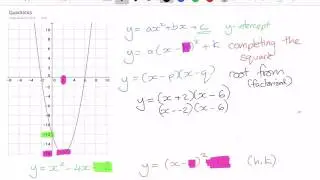 Quadratics
y = ax² + bx + c y-intercept
y = a(x - )² + k completing the square
y = (x - p)(x - q) root from (factorised)
y = (x + 2)(x - 6)
(x - -2)(x - 6)
y = x² - 4x
y = (x - )² (h, k)